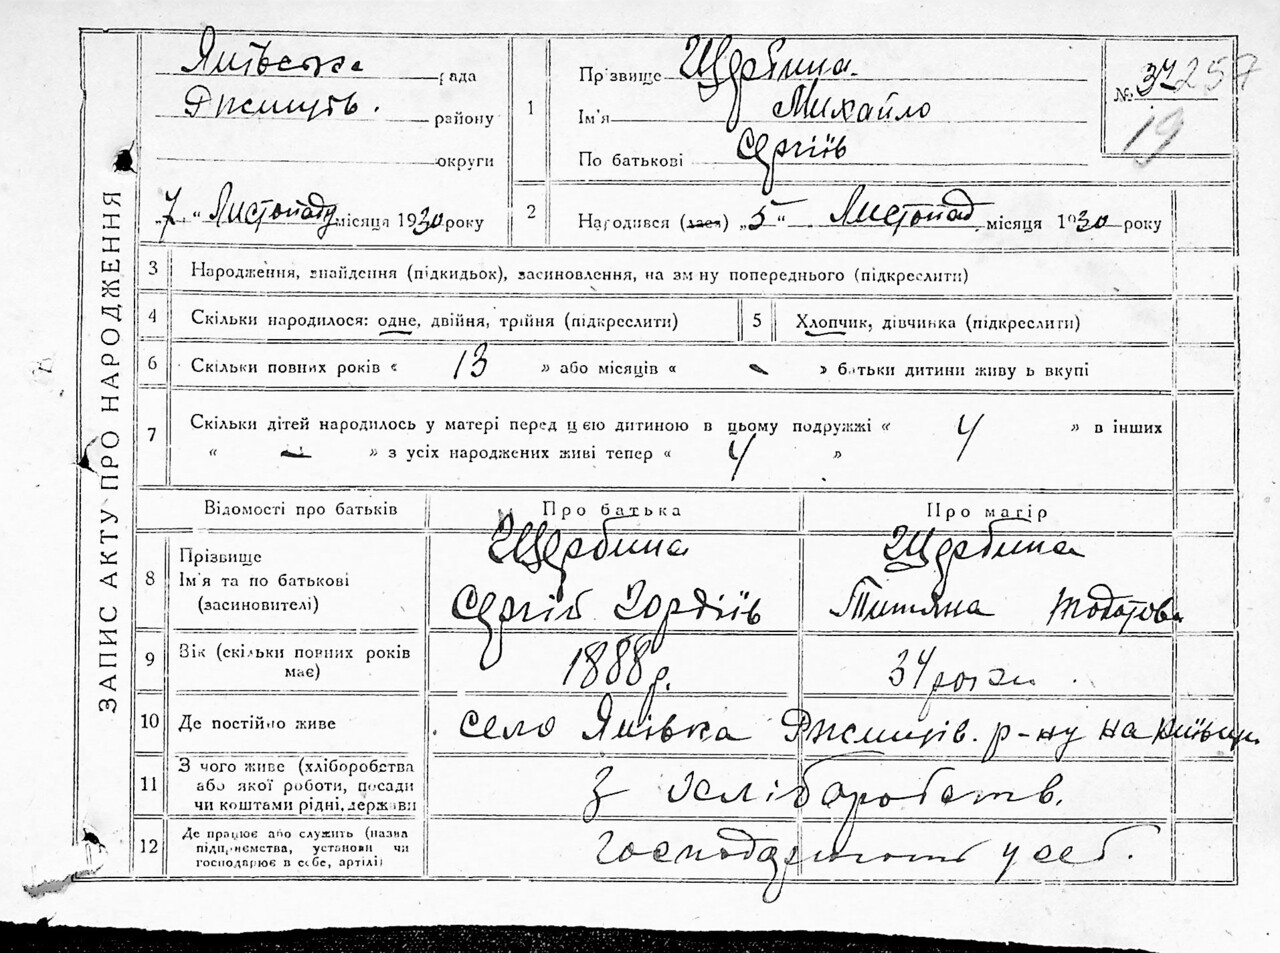 ЗАПИС АКТУ ПРО НАРОДЖЕННЯ
Яшівська рада
району
округи
"7" Листопада місяця 1930 року
1 Прізвище Щербина
Ім'я Михайло
По батькові Сергіїв
№ 37 257
19
2 Народився (лася) "5" Листопад місяця 1930 року
3 Народження, знайдення (підкидьок), засиновлення, на зміну попереднього (підкреслити)
4 Скільки народилося: одне, двійня, трійня (підкреслити)
5 Хлопчик, дівчинка (підкреслити)
6 Скільки повних років « 13 » або місяців « - » батьки дитини живуть вкупі
7 Скільки дітей народилось у матері перед цією дитиною в цьому подружжі « 4 » в інших
« - » з усіх народжених живі тепер « 4 »
Відомості про батьків Про батька Про матір
8 Прізвище Щербина Щербина
Ім'я та по батькові Сергій Гордіїв Титяна Тодотова
(засиновителі)
9 Вік (скільки повних років 1888 р. 34 роки
має)
10 Де постійно живе село Яшівка р-ну на Київщ.
11 З чого живе (хліборобства з хліборобств.
або якої роботи, посади
чи коштами рідні, держави
12 Де працює або служить (назва господарстві у себ.
підприємства, установи чи
господарює в себе, артілі)